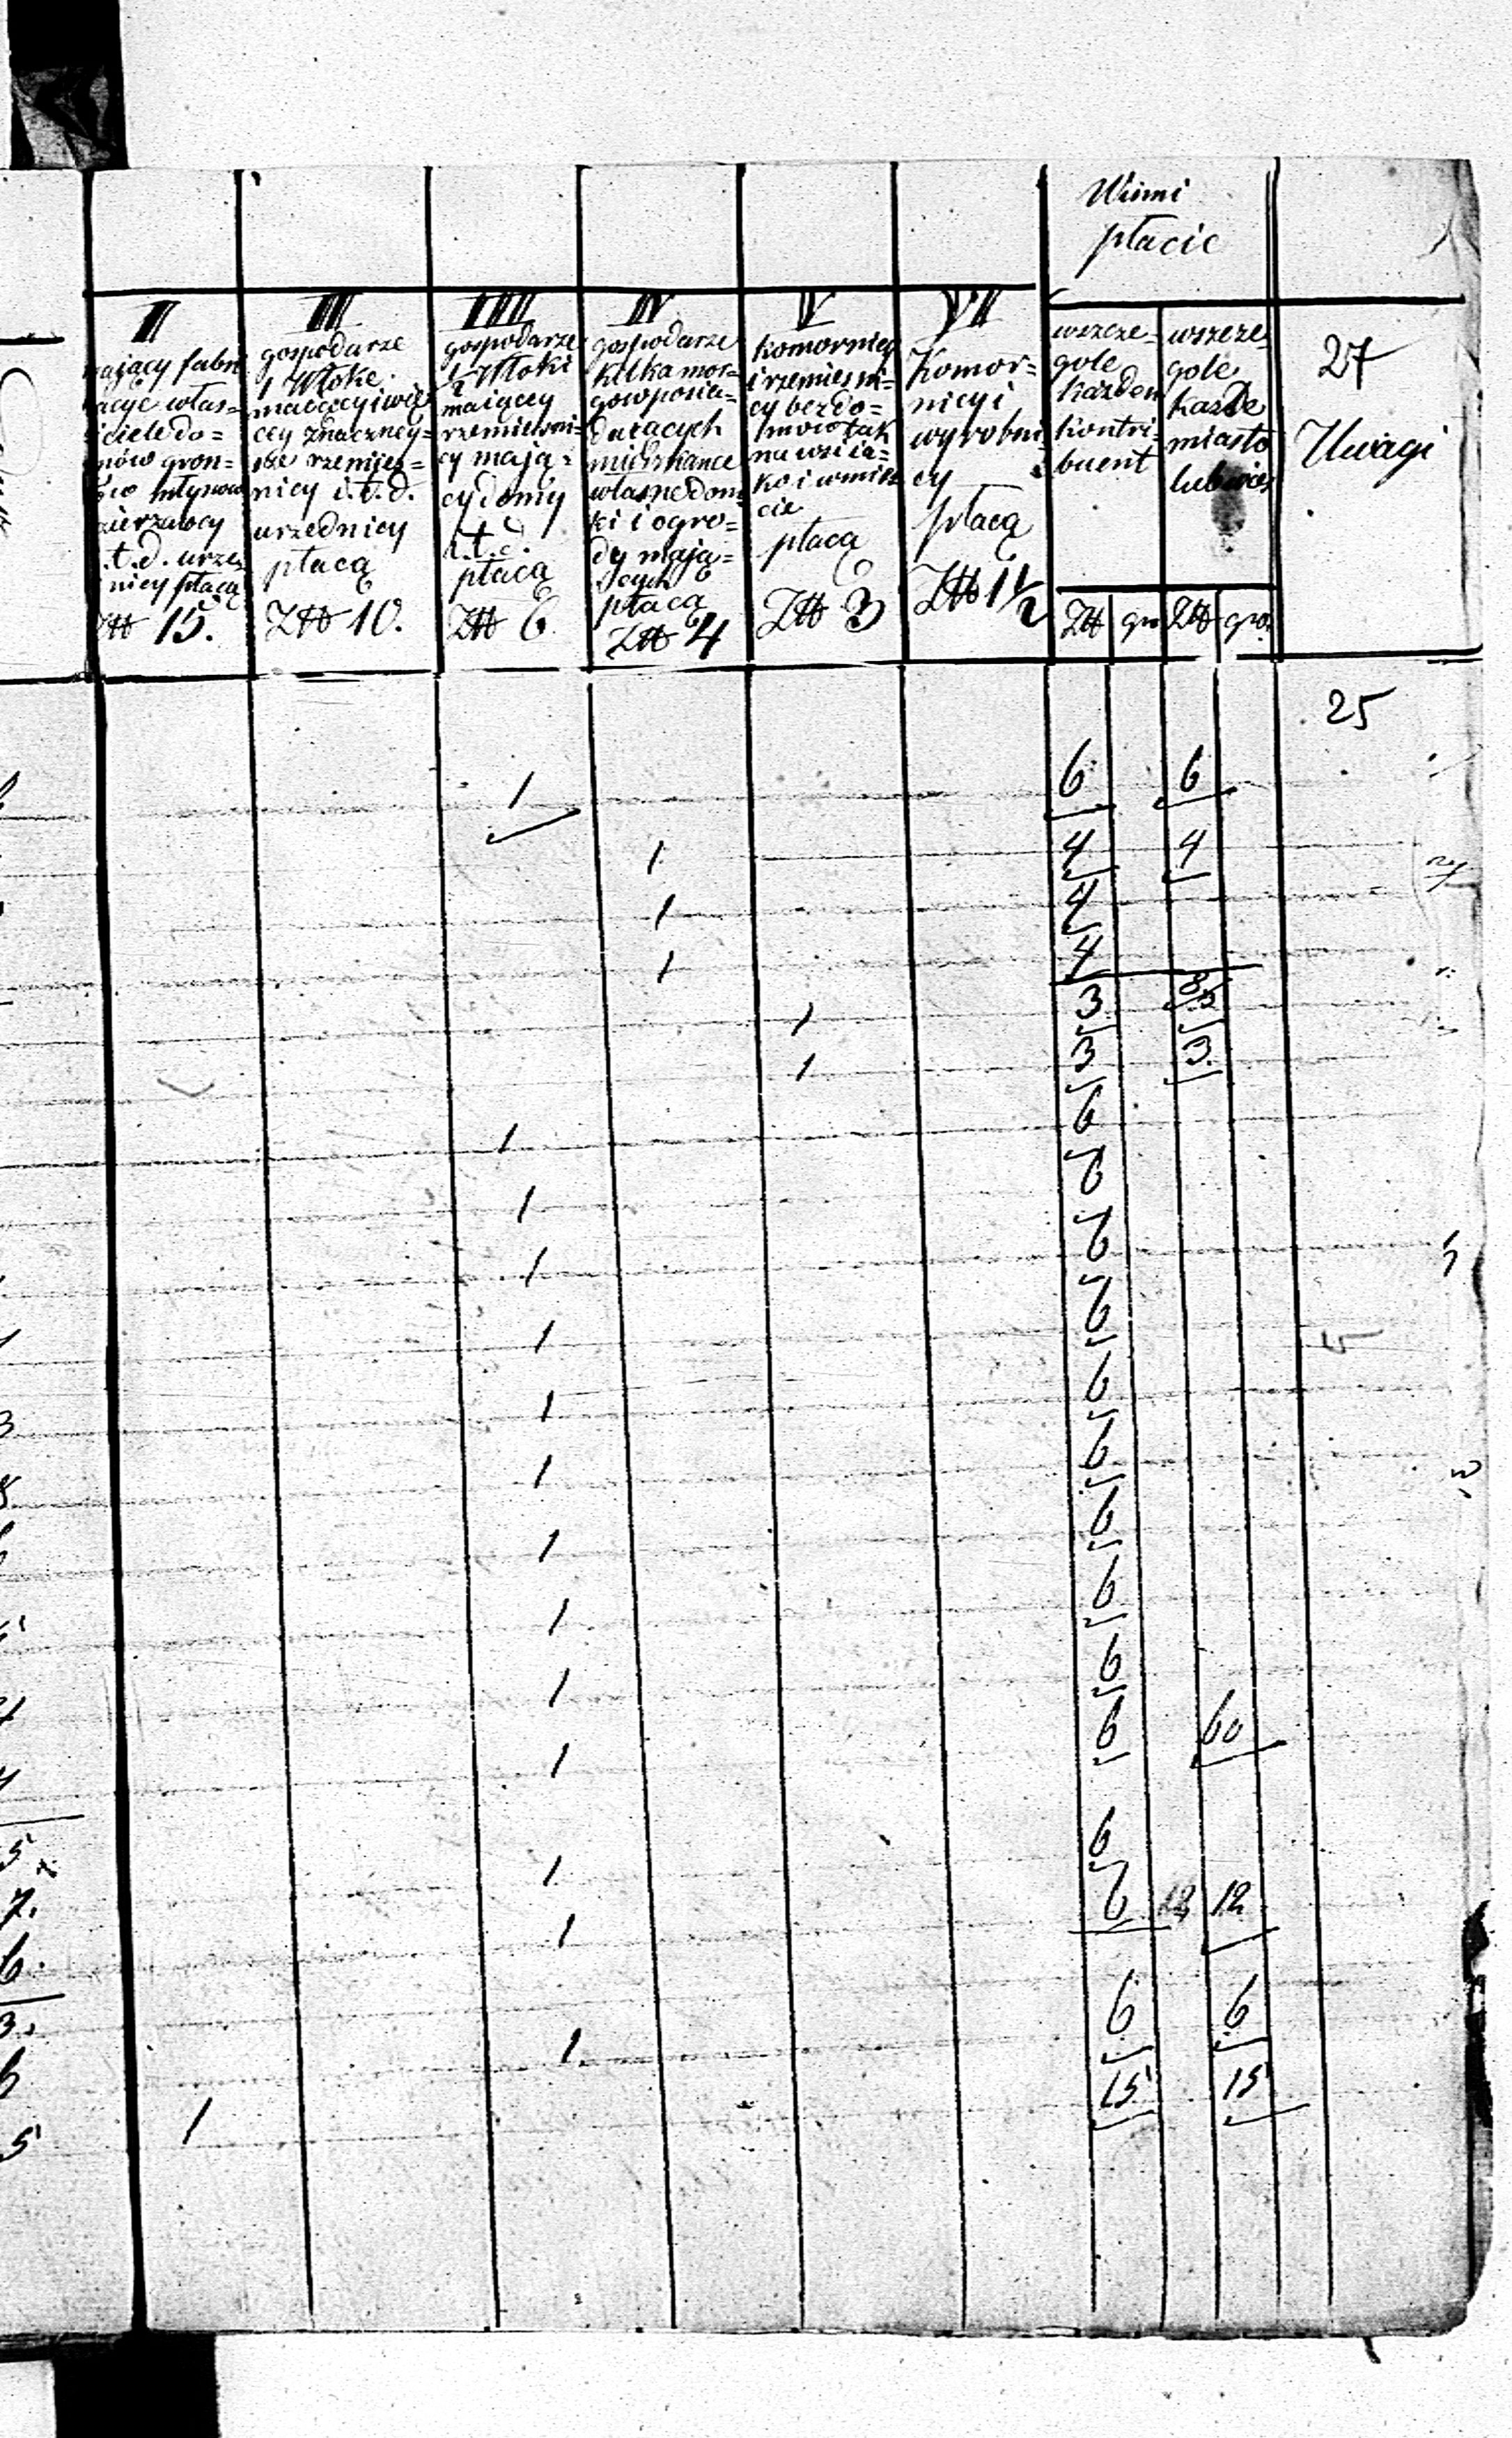 Winni
płacić
II
mający fabri
acye włas=
iciele do=
mów gron=
młynów
zierzawcy
.t.d. urzę
nicy płacą
Z# 15.
III
gospodarze
1 Włokę
maiący i wię
cey znaczney=
sze rzemieś=
nicy i.t.d.
urzędnicy
płacą
Z# 10.
IIII
gospodarze
½ Włoki
maiący
rzemieślni=
cy mają=
cy domy
i.t.d.
płacą
Z# 6
IV
gospodarze
kilka mor=
gow posia=
daiących
mieszkance
własne dom
ki i ogro=
dy mają=
cych
płacą
Z# 4
V
Komornicy
i rzemieśni=
cy bez do=
mow tak
na wsi ia=
ko i w mieś
cie
płacą
Z# 3
VI
Komor=
nicy i
wyrobni
cy
płacą
Z# 1½
wszcze=
gole
każden
kontri=
buent
Z# gr
wszcze=
gole
każde
miasto
lub wieś
Z# gro.
27
Uwagi
25
1 6 6
1 4 4
1 4
1 4
1 3
1 3 3
1 6
1 6
1 6
1 6
1 6
1 6
1 6
1 6
1 6
1 6 60
1 6
1 6 12 12
1 6 6
1 15 15